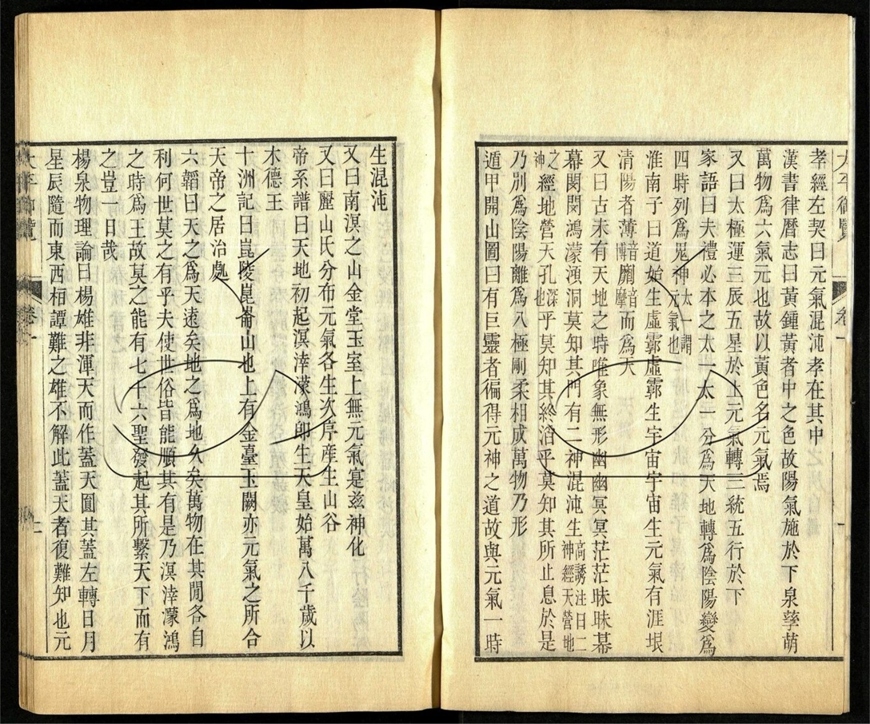 孝經左契曰元氣混沌孝在其中
漢書律曆志曰黃鍾黃者中之色故陽氣施於下泉孳萌
萬物爲六氣元也故以黃色名元氣焉
又曰太極運三辰五星於上元氣轉三統五行於下
家語曰夫禮必本之太一太一分爲天地轉爲陰陽變爲
四時列爲鬼神太一謂元氣也
淮南子曰道始生虛霩虛霩生宇宙宇宙生元氣有涯垠
清陽者薄劘音摩而爲天
又曰古未有天地之時唯象無形幽幽冥冥茫茫昧昧幕
幕閔閔鴻濛澒洞莫知其門有二神混沌生高誘注曰二神經天營地
之神經地營天孔深也乎莫知其終滔乎莫知其所止息於是
乃別爲陰陽離爲八極剛柔相成萬物乃形
遁甲開山圖曰有巨靈者徧得元神之道故與元氣一時
生混沌
又曰南溟之山金堂玉室上無元氣寔滋神化
又曰麗山氏分布元氣各生次序産生山谷
帝系譜曰天地初起溟涬濛鴻卽生天皇始萬八千歲以
木德王
十洲記曰崑陵崑崙山也上有金臺玉闕亦元氣之所合
天帝之居治處
六韜曰天之爲天遠矣地之爲地久矣萬物在其閒各自
利何世莫之有乎夫使世俗皆能順其有是乃溟涬濛鴻
之時爲王故莫之能有七十六聖發起其所繫天下而有
之豈一日哉
楊泉物理論曰楊雄非渾天而作蓋天圓其蓋左轉日月
星辰隨而東西桓譚難之雄不解此蓋天者復難知也元